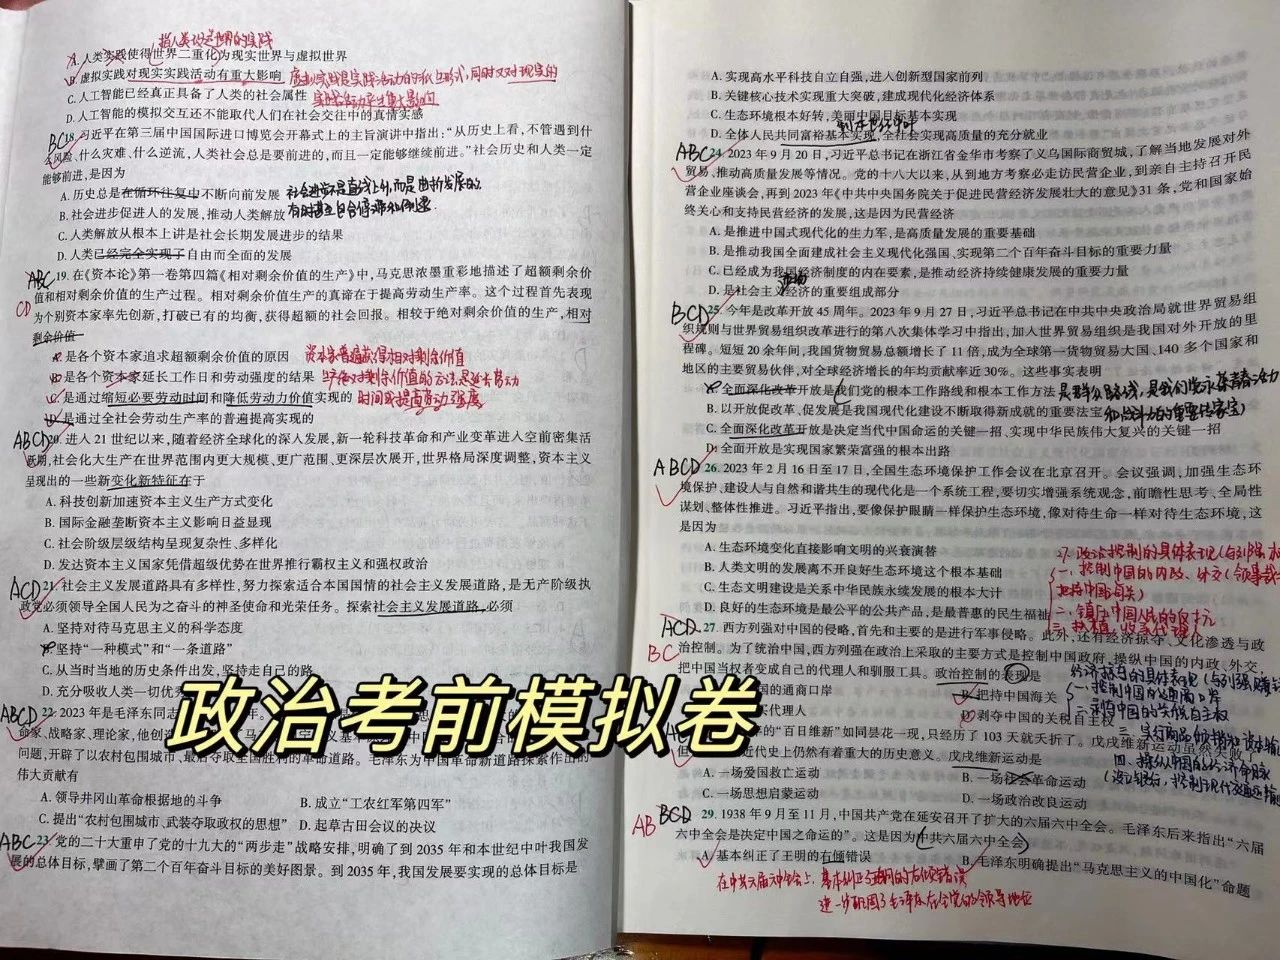 指人类改造世界的实践
A.人类实践使得世界二重化为现实世界与虚拟世界
B.虚拟实践对现实实践活动有重大影响
C.人工智能已经真正具备了人类的社会属性
D.人工智能的模拟交互还不能取代人们在社会交往中的真情实感
BC
18.习近平在第三届中国国际进口博览会开幕式上的主旨演讲中指出:“从历史上看,不管遇到什
么风险、什么灾难、什么逆流,人类社会总是要前进的,而且一定能够继续前进。”社会历史和人类一定
能够前进,是因为
A.历史总是在循环往复中不断向前发展
社会进步不是直线上升,而是曲折发展的,
B.社会进步促进人的发展,推动人类解放
C.人类解放从根本上讲是社会长期发展进步的结果
D.人类已经完全实现了自由而全面的发展
ABC
CD
19.在《资本论》第一卷第四篇《相对剩余价值的生产》中,马克思浓墨重彩地描述了超额剩余价
值和相对剩余价值的生产过程。相对剩余价值生产的真谛在于提高劳动生产率。这个过程首先表现
为个别资本家率先创新,打破已有的均衡,获得超额的社会回报。相较于绝对剩余价值的生产,相对
剩余价值
A.是各个资本家追求超额剩余价值的原因
资本家普遍获得相对剩余价值
B.是各个资本家延长工作日和劳动强度的结果
生产绝对剩余价值的方法是延长劳动
C.是通过缩短必要劳动时间和降低劳动力价值实现的
时间或提高劳动强度
D.是通过全社会劳动生产率的普遍提高实现的
ABCD
20.进入21世纪以来,随着经济全球化的深入发展,新一轮科技革命和产业变革进入空前密集活
跃期,社会化大生产在世界范围内更大规模、更广范围、更深层次展开,世界格局深度调整,资本主义
呈现出的一些新变化新特征在于
A.科技创新加速资本主义生产方式变化
B.国际金融垄断资本主义影响日益显现
C.社会阶级层级结构呈现复杂性、多样化
D.发达资本主义国家凭借超级优势在世界推行霸权主义和强权政治
ACD
21.社会主义发展道路具有多样性,努力探索适合本国国情的社会主义发展道路,是无产阶级执
政党必须领导全国人民为之奋斗的神圣使命和光荣任务。探索社会主义发展道路,必须
A.坚持对待马克思主义的科学态度
B.坚持“一种模式”和“一条道路”
C.从当时当地的历史条件出发,坚持走自己的路
D.充分吸收人类一切优秀
ABCD
22.2023年是毛泽东同志
命家、战略家、理论家,他创造
问题,开辟了以农村包围城市、最后夺取全国胜利的革命道路。毛泽东为中国革命新道路探索作出的
伟大贡献有
A.领导井冈山革命根据地的斗争
B.成立“工农红军第四军”
C.提出“农村包围城市、武装夺取政权的思想”
D.起草古田会议的决议
ABC
23.党的二十大重申了党的十九大的“两步走”战略安排,明确了到2035年和本世纪中叶我国发
展的总体目标,擘画了第二个百年奋斗目标的美好图景。到2035年,我国发展要实现的总体目标是
A.实现高水平科技自立自强,进入创新型国家前列
B.关键核心技术实现重大突破,建成现代化经济体系
C.生态环境根本好转,美丽中国目标基本实现
D.全体人民共同富裕基本实现,全社会实现高质量的充分就业
ABC
24.2023年9月20日,习近平总书记在浙江省金华市考察了义乌国际商贸城,了解当地发展对外
贸易,推动高质量发展等情况。党的十八大以来,从到地方考察必走访民营企业,到亲自主持召开民
营企业座谈会,再到2023年《中共中央国务院关于促进民营经济发展壮大的意见》31条,党和国家始
终关心和支持民营经济的发展,这是因为民营经济
A.是推进中国式现代化的生力军,是高质量发展的重要基础
B.是推动我国全面建成社会主义现代化强国、实现第二个百年奋斗目标的重要力量
C.已经成为我国经济制度的内在要素,是推动经济持续健康发展的重要力量
D.是社会主义经济的重要组成部分
BCD
25.今年是改革开放45周年。2023年9月27日,习近平总书记在中共中央政治局就世界贸易组
织规则与世界贸易组织改革进行的第八次集体学习中指出,加入世界贸易组织是我国对外开放的里
程碑。短短20余年间,我国货物贸易总额增长了11倍,成为全球第一货物贸易大国、140多个国家和
地区的主要贸易伙伴,对全球经济增长的年均贡献率近30%。这些事实表明
A.全面深化改革开放是我们党的根本工作路线和根本工作方法
B.以开放促改革、促发展是我国现代化建设不断取得新成就的重要法宝
C.全面深化改革开放是决定当代中国命运的关键一招、实现中华民族伟大复兴的关键一招
D.全面开放是实现国家繁荣富强的根本出路
ABCD
26.2023年2月16日至17日,全国生态环境保护工作会议在北京召开。会议强调,加强生态环
境保护、建设人与自然和谐共生的现代化是一个系统工程,要切实增强系统观念,前瞻性思考、全局性
谋划、整体性推进。习近平指出,要像保护眼睛一样保护生态环境,像对待生命一样对待生态环境,这
是因为
A.生态环境变化直接影响文明的兴衰演替
B.人类文明的发展离不开良好生态环境这个根本基础
C.生态文明建设是关系中华民族永续发展的根本大计
D.良好的生态环境是最公平的公共产品,是最普惠的民生福祉
ACD
BC
27.西方列强对中国的侵略,首先和主要的是进行军事侵略。此外,还有经济掠夺、文化渗透与政
治控制。为了统治中国,西方列强在政治上采取的主要方式是控制中国政府,操纵中国的内政、外交,
把中国当权者变成自己的代理人和驯服工具。政治控制的表现是
国的通商口岸
B.把持中国海关
代理人
D.剥夺中国的关税自主权
年的“百日维新”如同昙花一现,只经历了103天就夭折了。戊戌维新运动虽然失败了
近代史上仍然有着重大的历史意义。戊戌维新运动是
A.一场爱国救亡运动
B.一场社会革命运动
C.一场思想启蒙运动
D.一场政治改良运动
BCD
AB
29.1938年9月至11月,中国共产党在延安召开了扩大的六届六中全会。毛泽东后来指出“六届
六中全会是决定中国之命运的”。这是因为中共六届六中全会
A.基本纠正了王明的右倾错误
B.毛泽东明确提出“马克思主义的中国化”命题
在中共六届六中全会上,基本纠正了王明的右倾错误
进一步巩固了毛泽东在全党的领导地位
政治考前模拟卷